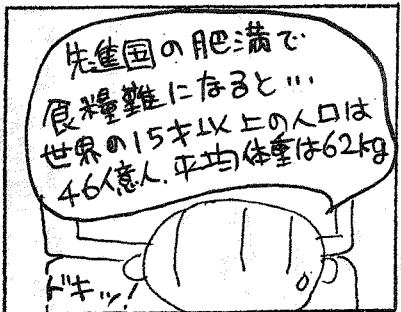 先進国の肥満で
食糧難になると…
世界の15才以上の人口は
46億人、平均体重は62kg
ドキッ!